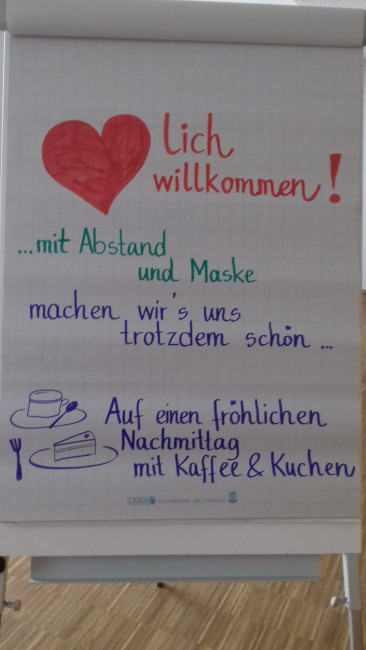 lich
willkommen!
...mit Abstand
und Maske
machen wir's uns
trotzdem schön...
Auf einen fröhlichen
Nachmittag
mit Kaffee & Kuchen